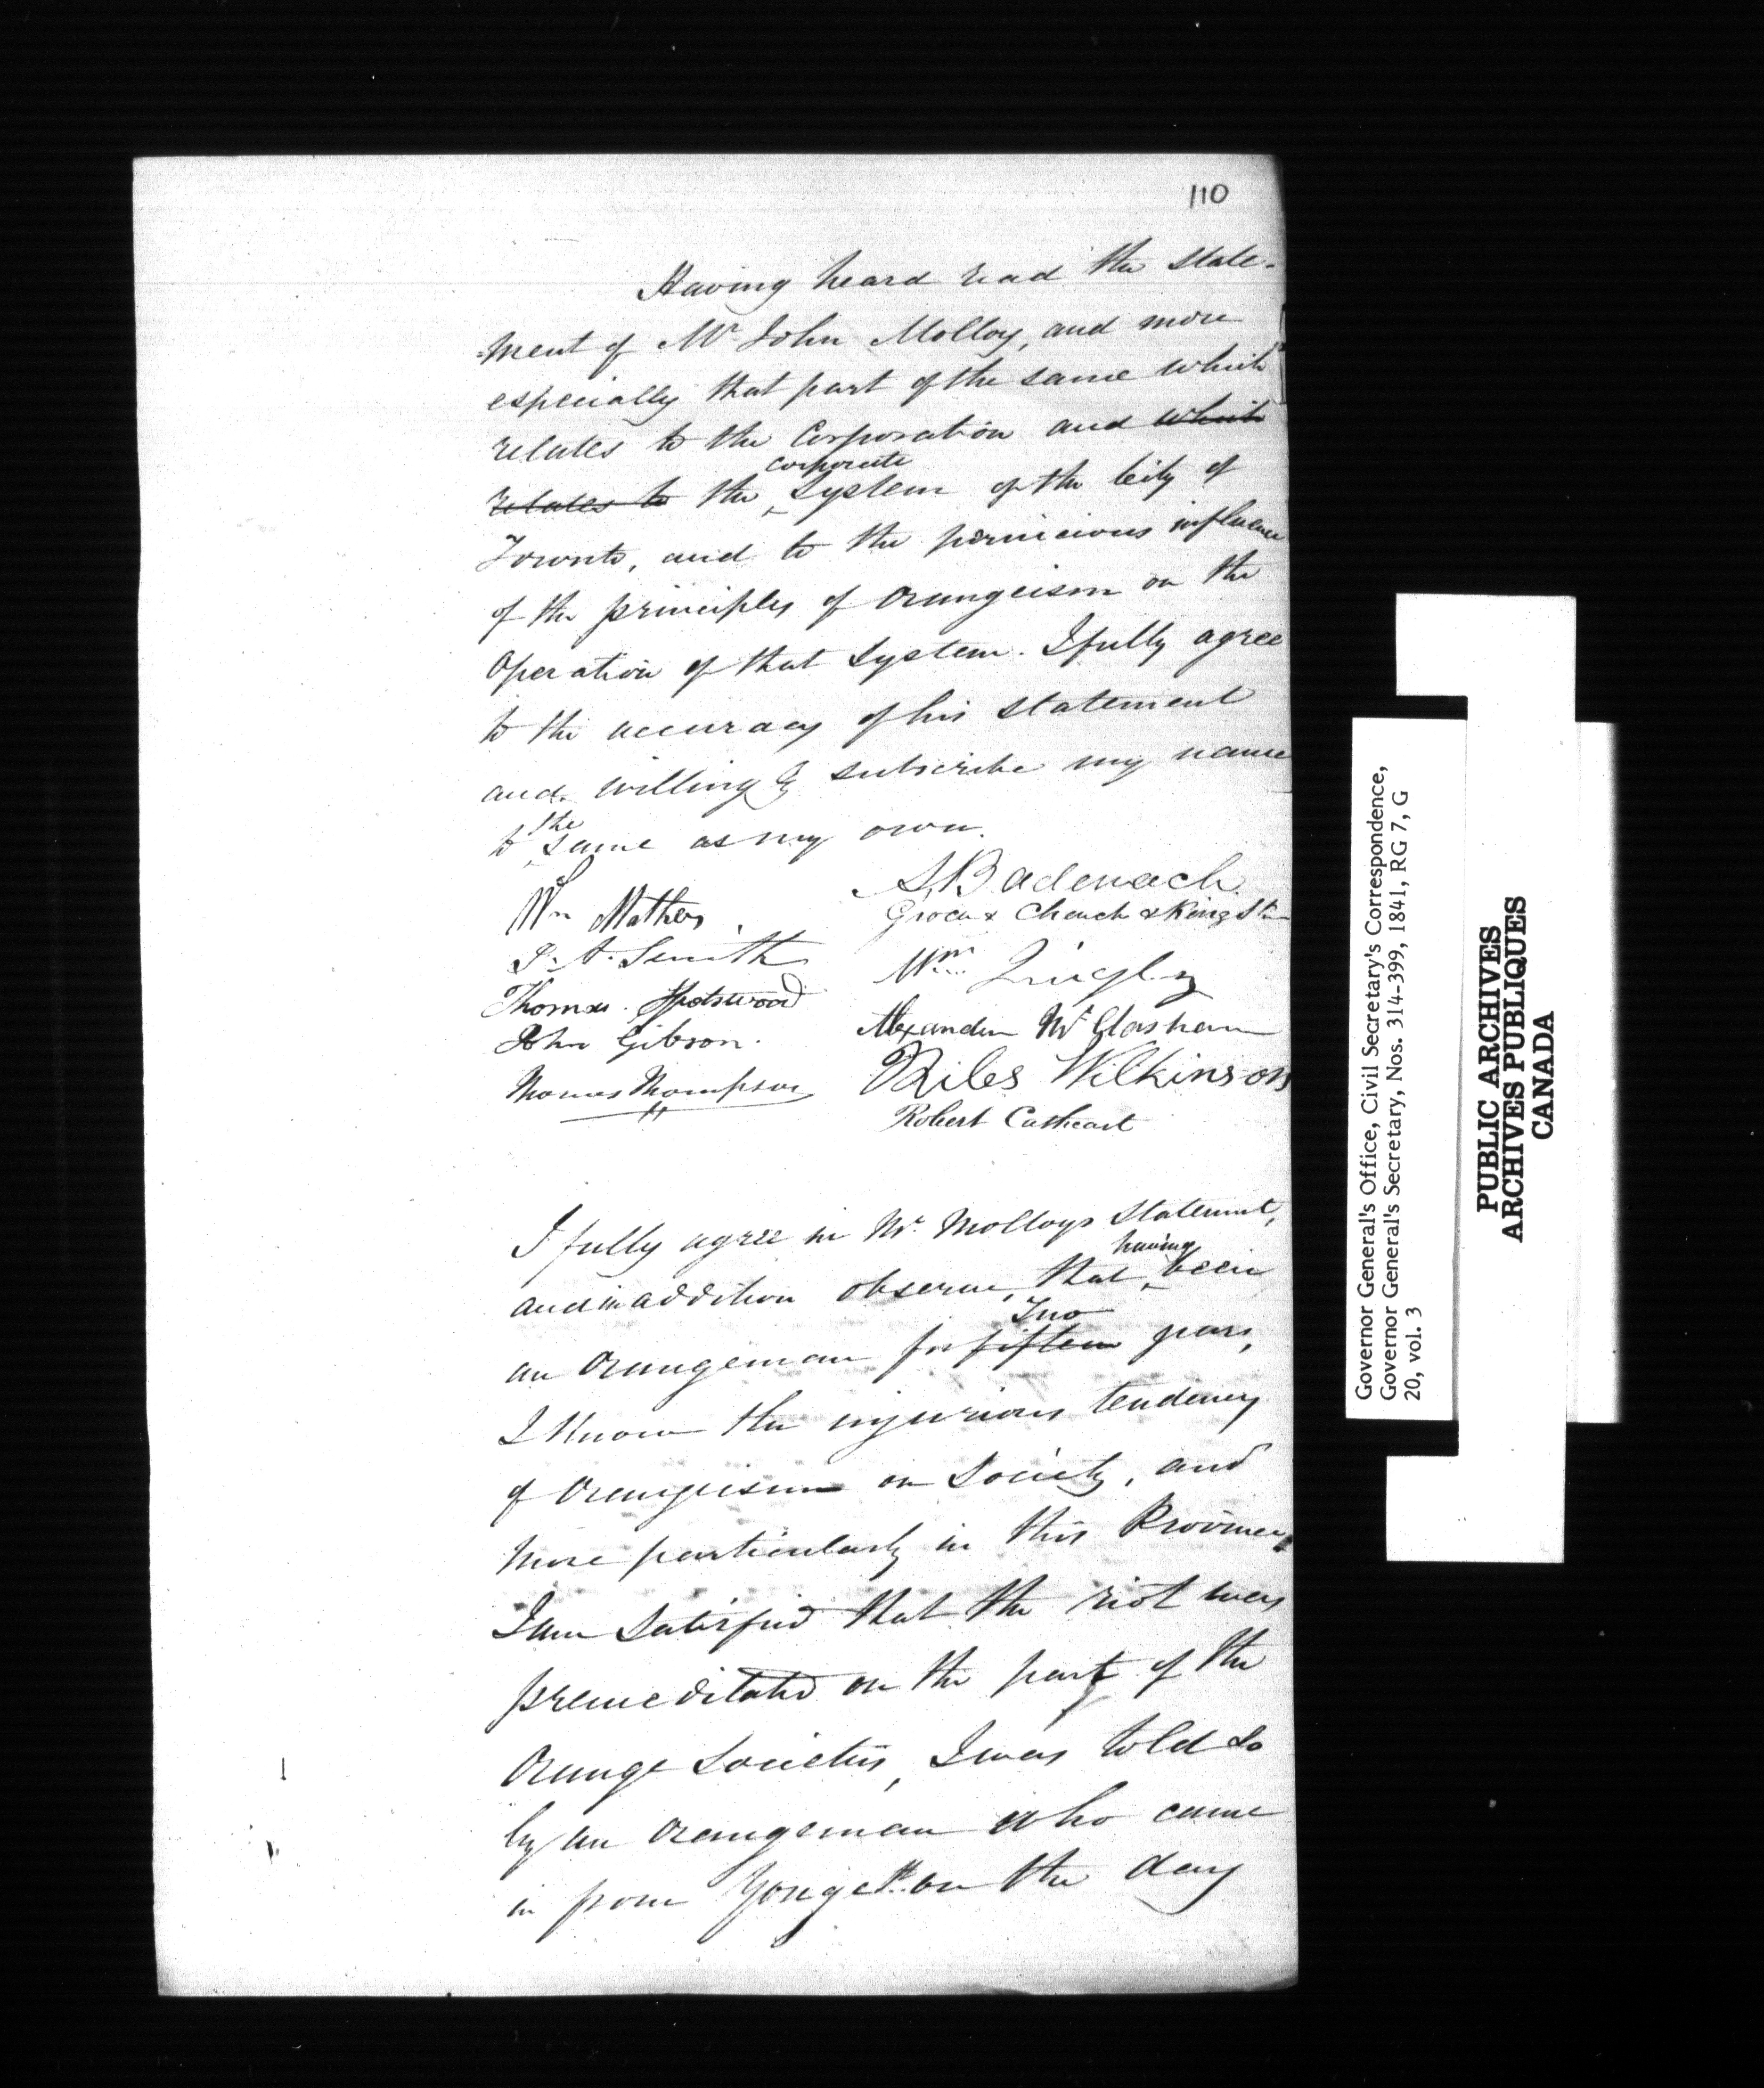 110
Having heard read the state-
-ment of Mr John Molloy, and more
especially that part of the same which
relates to the Corporation and which
relates to the corporate System of the City of
Toronto, and to the pernicious influence
of the principles of Orangeism on the
Operation of that System. I fully agree
to the accuracy of his statement
and willing to subscribe my name
to the same as my own.
Wm Mathers
J. A. Smith
Thomas Spotswood
John Gibson.
Thomas Thompson
A. Badenach
Grocer Church & King St
Wm
Alexander McGlashan
Riles Wilkinson
Robert Cathcart
I fully agree in Mr. Molloys Statement,
and in addition observe, that having been
an Orangeman for fifteen Two years,
I Know the injurious tendency
of Orangeism on Society, and
more particularly in this Province
I am Satisfied that the riot was
premeditated on the part of the
Orange Societies, I was told so
by an Orangeman who came
in from Yonge St. on the day
Governor General's Office, Civil Secretary's Correspondence,
Governor General's Secretary, Nos. 314-399, 1841, RG 7, G
20, vol. 3
PUBLIC ARCHIVES
ARCHIVES PUBLIQUES
CANADA